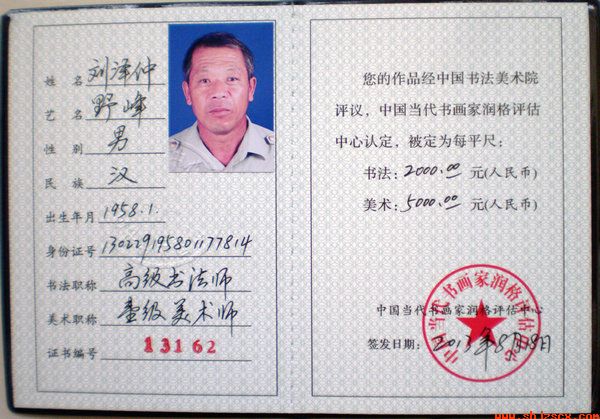 姓名 刘泽仲
艺名 野峰
性别 男
民族 汉
出生年月 1958.1.
身份证号 130229195801177814
书法职称 高级书法师
美术职称 壹级美术师
证书编号 13162
您的作品经中国书法美术院
评议，中国当代书画家润格评估
中心认定，被定为每平尺：
书法：2000.00 元(人民币)
美术：5000.00 元(人民币)
中国当代书画家润格评估中心
签发日期：2013年8月8日